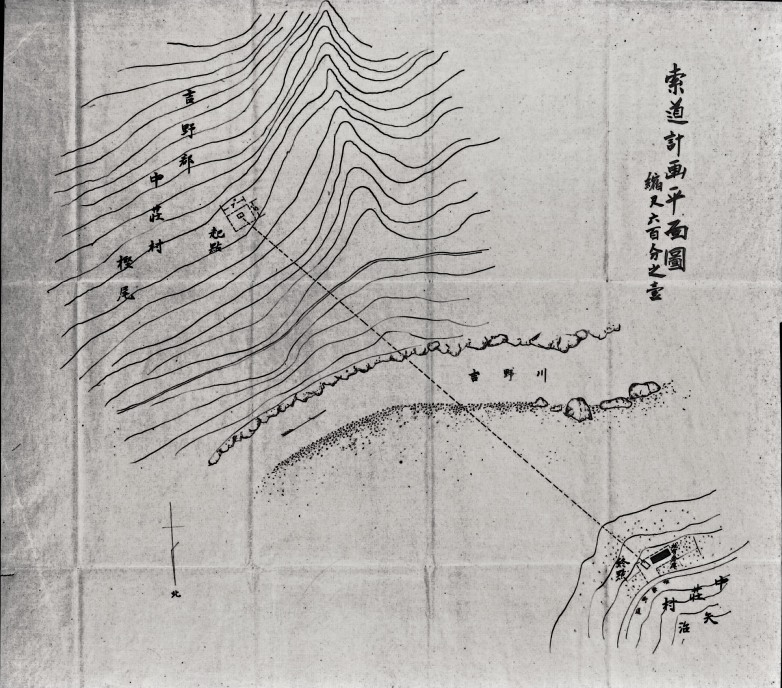 索道計画平面圖
縮尺六百分之壹
吉野郡
中莊村
樫尾
起點
吉野川
終點
中莊村
矢治
北